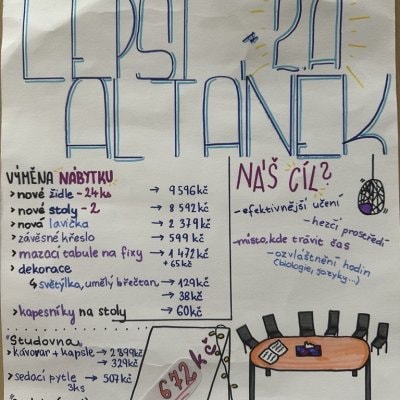 LEPŠÍ ZA
ALTÁNEK
VÝMĚNA NÁBYTKU
> nové židle - 24ks → 9596kč
> nové stoly - 2 → 8592kč
> nová lavička → 2 379kč
> závěsné křeslo → 599 kč
> mazací tabule na fixy → 1 472kč
+ 65kč
> dekorace
↳ světýlka, umělý břečťan, → 129kč
→ 38kč
> kapesníky na stoly → 60kč
NÁŠ CÍL?
- efektivnější učení
- hezčí prostředí
- místo, kde trávit čas
- ozvláštnění hodin
(biologie, jazyky...)
"Studovna"
> kávovar + kapsle → 2 899kč
→ 329kč
> sedací pytle → 507kč
3ks
672kč